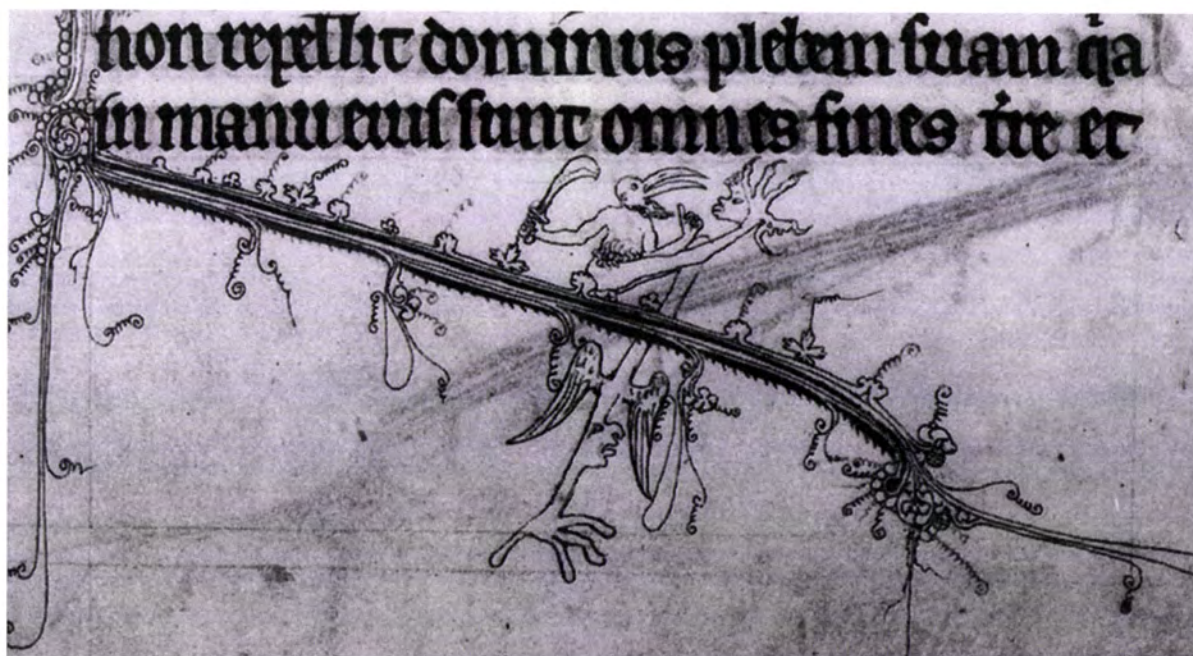 non repellit dominus plebem suam qͥa
in manu eius sunt omnes fines t̾re et